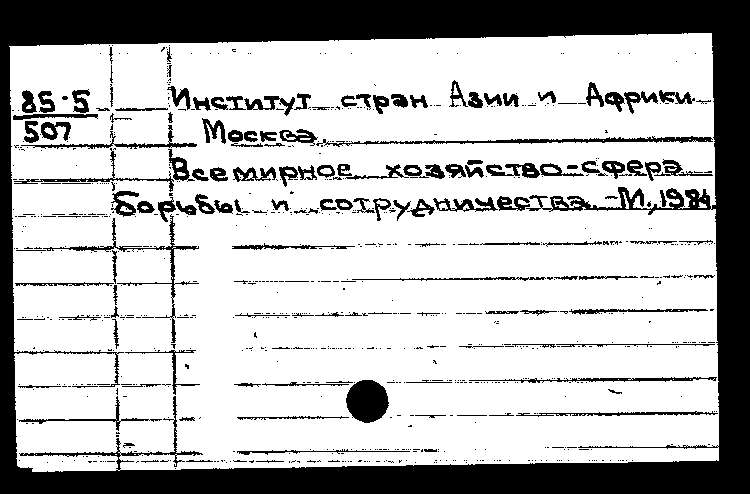 85·5
507
Институт стран Азии и Африки.
Москва.
Всемирное хозяйство-сфера
борьбы и сотрудничества.-М.,1984.